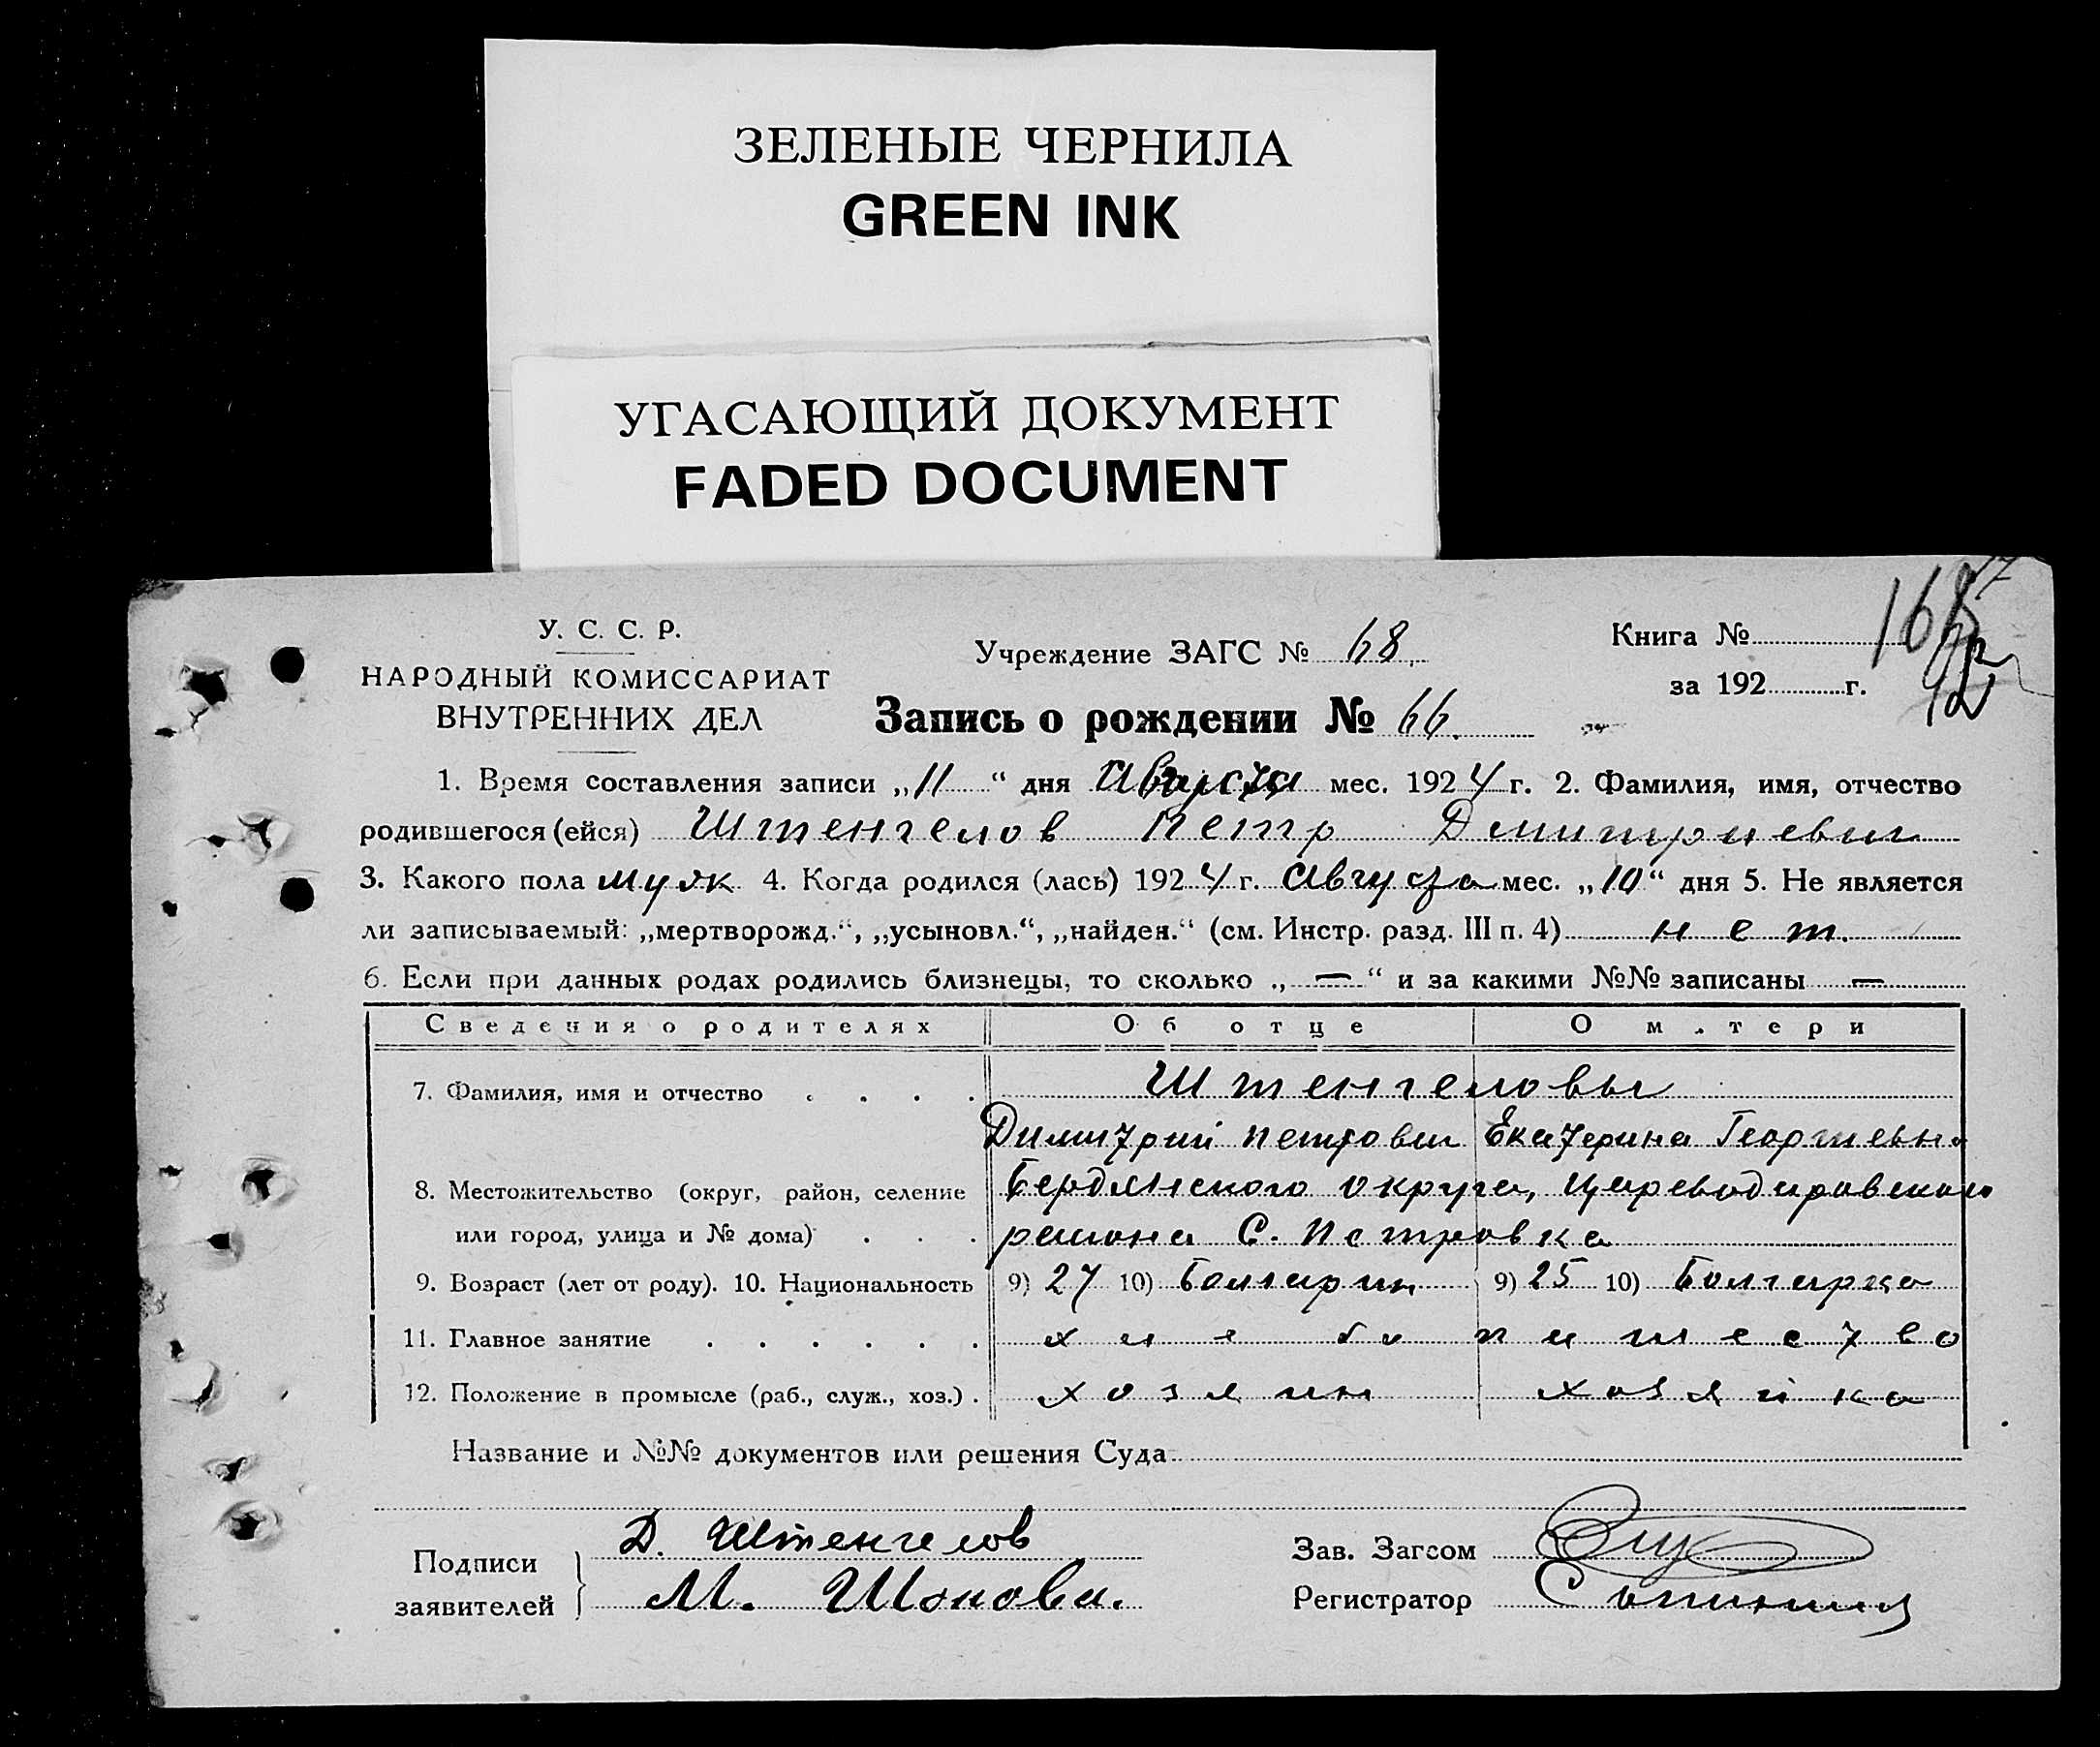 ЗЕЛЕНЫЕ ЧЕРНИЛА
GREEN INK
УГАСАЮЩИЙ ДОКУМЕНТ
FADED DOCUMENT
У. С. С. Р.
НАРОДНЫЙ КОМИССАРИАТ
ВНУТРЕННИХ ДЕЛ
Учреждение ЗАГС № 68.
Запись о рождении № 66.
Книга №
за 192 г.
1. Время составления записи „11“ дня Августа мес. 1924 г. 2. Фамилия, имя, отчество
родившегося (ейся) Штенгелов Петр Дмитриевич
3. Какого пола муж 4. Когда родился (лась) 1924 г. Августа мес. „10“ дня 5. Не является
ли записываемый: „мертворожд.“, „усыновл.“, „найден.“ (см. Инстр. разд. III п. 4) нет.
6. Если при данных родах родились близнецы, то сколько „—“ и за какими №№ записаны —
Сведения о родителях Об отце О м.тери
7. Фамилия, имя и отчество . . . . Штенгеловы
Димитрий Петрович Екатерина Георгиевна
8. Местожительство (округ, район, селение Бердянского округа, Цареводаровского
или город, улица и № дома) . . . района С. Петровка
9. Возраст (лет от роду). 10. Национальность 9) 27 10) Болгарин 9) 25 10) Болгарка
11. Главное занятие . . . . . . хлебопашество
12. Положение в промысле (раб., служ., хоз.) . хозяин хозяйка
Название и №№ документов или решения Суда
Подписи
заявителей
Д. Штенгелов
М. Шонова.
Зав. Загсом
Регистратор